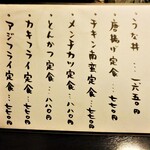 ・うな丼 … 一六五〇円
・唐揚げ定食 … 七七〇円
・チキン南蛮定食 … 七七〇円
・メンチカツ定食 … 八八〇円
・とんかつ定食 … 八八〇円
・カキフライ定食 … 七七〇円
・アジフライ定食 … 七七〇円